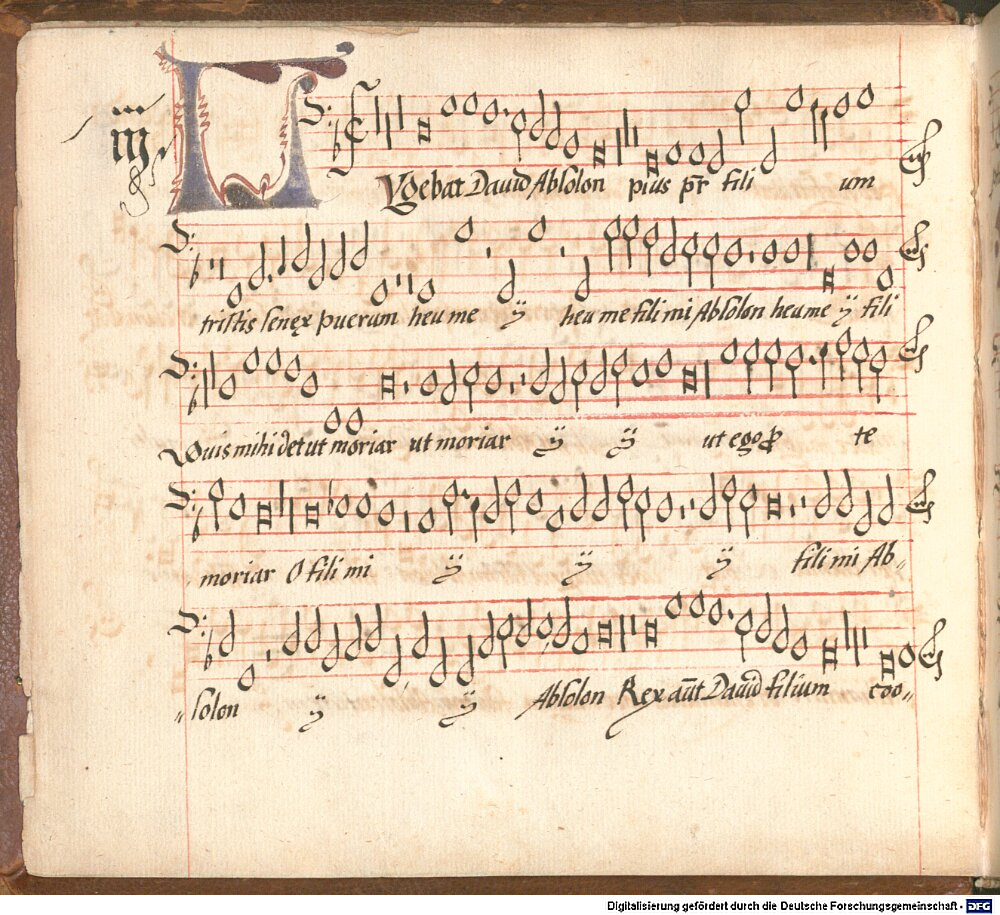 LVgebat Dauid Absolon pius pr̄ fili um
tristis senex puerum heu me ij heu me fili mi Absolon heu me ij fili
Quis mihi det ut moriar ut moriar ij ij ut ego te
moriar O fili mi ij ij ij fili mi Ab„
„solon ij ij Absolon Rex aūt Dauid filium coo„
Digitalisierung gefördert durch die Deutsche Forschungsgemeinschaft - DFG